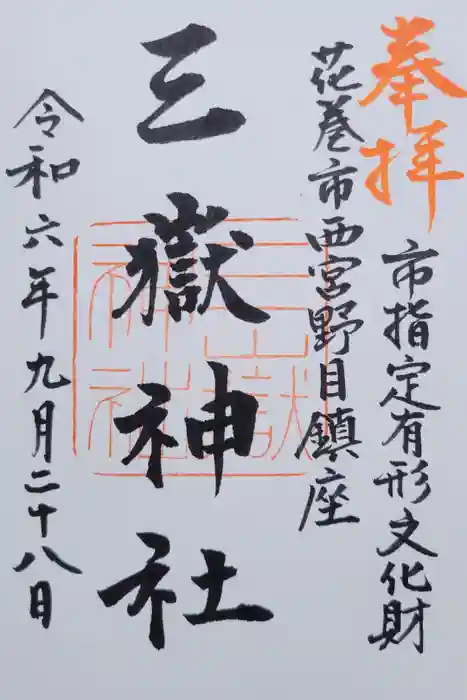 奉拝
市指定有形文化財
花巻市西宮野目鎮座
三嶽神社
三嶽神社
令和六年九月二十八日